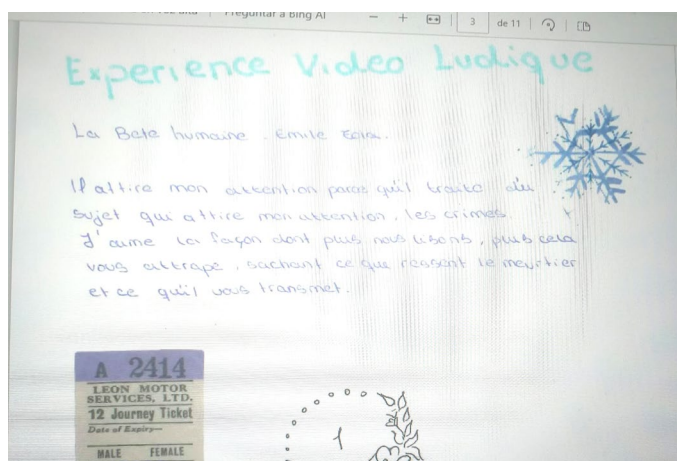 Preguntar a Bing AI
3 de 11
Experience Video Ludique
La Bete humaine. Emile Zola.
Il attire mon attention parce qu'il traite du
sujet qui attire mon attention, les crimes.
J'aime la façon dont plus nous lisons, plus cela
vous attrape, sachant ce que ressent le meurtier
et ce qu'il vous transmet.
A 2414
LEON MOTOR
SERVICES, LTD.
12 Journey Ticket
Date of Expiry—
MALE FEMALE
1